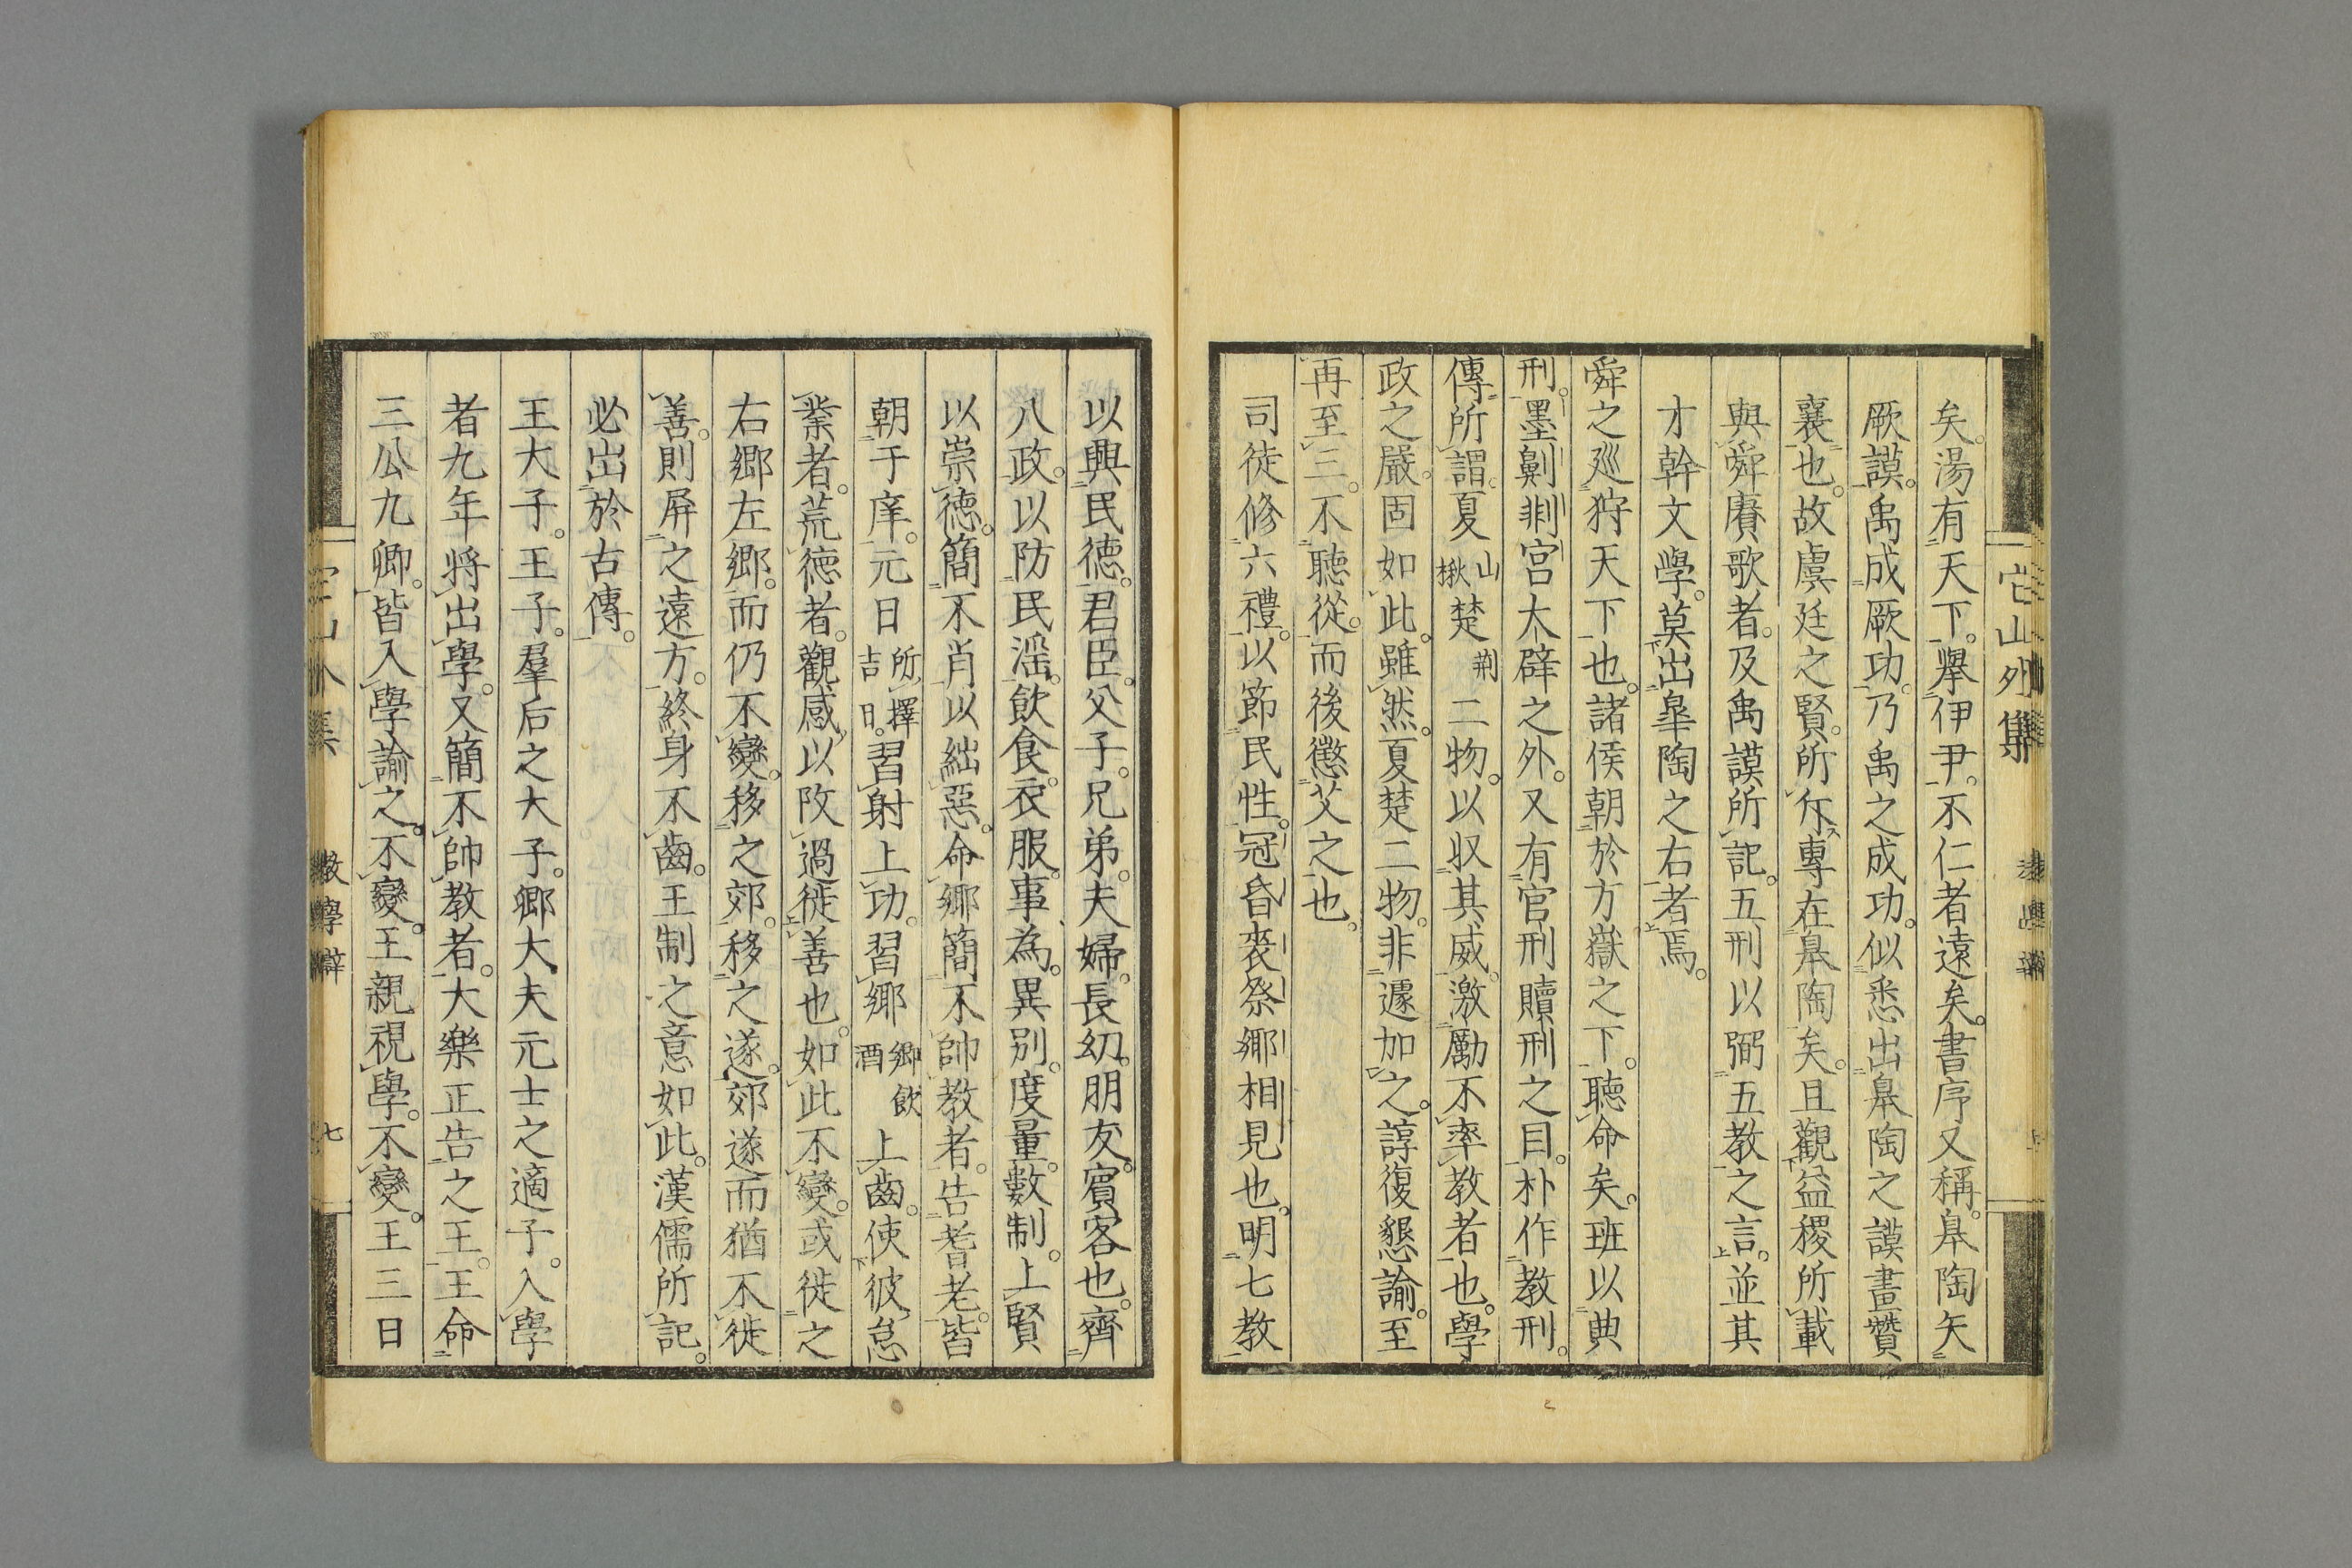 它山外集
矣。湯有天下。擧伊尹。不仁者遠矣。書序又稱。臯陶矢
厥謨。禹成厥功。乃禹之成功。似悉出臯陶之謨畫贊
襄也。故虞廷之賢。所仄專在臯陶矣。且觀益稷所載
與舜賡歌者。及禹謨所記。五刑以弼五教之言。並其
才幹文學。莫出臯陶之右者焉。
舜之廵狩天下也。諸侯朝於方嶽之下。聽命矣。班以典
刑。墨劓剕宮大辟之外。又有官刑贖刑之目。朴作教刑。
傳所謂。夏山楸楚荆二物。以収其威。激勵不率教者也。學
政之嚴。固如此。雖然。夏楚二物。非遽加之。諄復懇諭。至
再至三。不聽從。而後懲艾之也。
司徒修六禮。以節民性。冠昏喪祭鄉相見也。明七教
以興民徳。君臣。父子。兄弟。夫婦。長幼。朋友。賓客也。齊
八政。以防民淫。飮食。衣服。事為。異別。度量。數制。上賢
以崇徳。簡不肖以絀惡。命鄉簡不帥教者。告耆老。皆
朝于庠。元日所擇吉日。習射上功。習鄉鄉飮酒上齒。使彼怠
業者。荒徳者。觀感以攺過徙善也。如此不變。或徙之
右鄉左鄉。而仍不變。移之郊。移之遂。郊遂而猶不徙
善。則屏之遠方。終身不齒。王制之意如此。漢儒所記。
必出於古傳。
王大子。王子。羣后之大子。卿大夫元士之適子。入學
者九年將出學。又簡不帥教者。大樂正告之王。王命
三公九卿。皆入學諭之。不變。王親視學。不變。王三日
教學辯
七